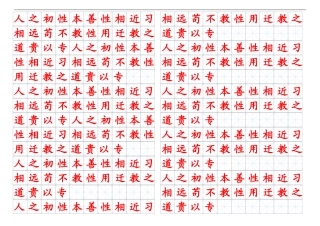 人之初性本善性相近习
相远苟不教性用迁教之
道贵以专人之初性本善
性相近习相远苟不教性
用迁教之道贵以专
人之初性本善性相近习
相远苟不教性用迁教之
道贵以专人之初性本善
性相近习相远苟不教性
用迁教之道贵以专
人之初性本善性相近习
相远苟不教性用迁教之
道贵以专
人之初性本善性相近习
相远苟不教性用迁教之
道贵以专
人之初性本善性相近习
相远苟不教性用迁教之
道贵以专
人之初性本善性相近习
相远苟不教性用迁教之
道贵以专
人之初性本善性相近习
相远苟不教性用迁教之
道贵以专
人之初性本善性相近习
相远苟不教性用迁教之
道贵以专